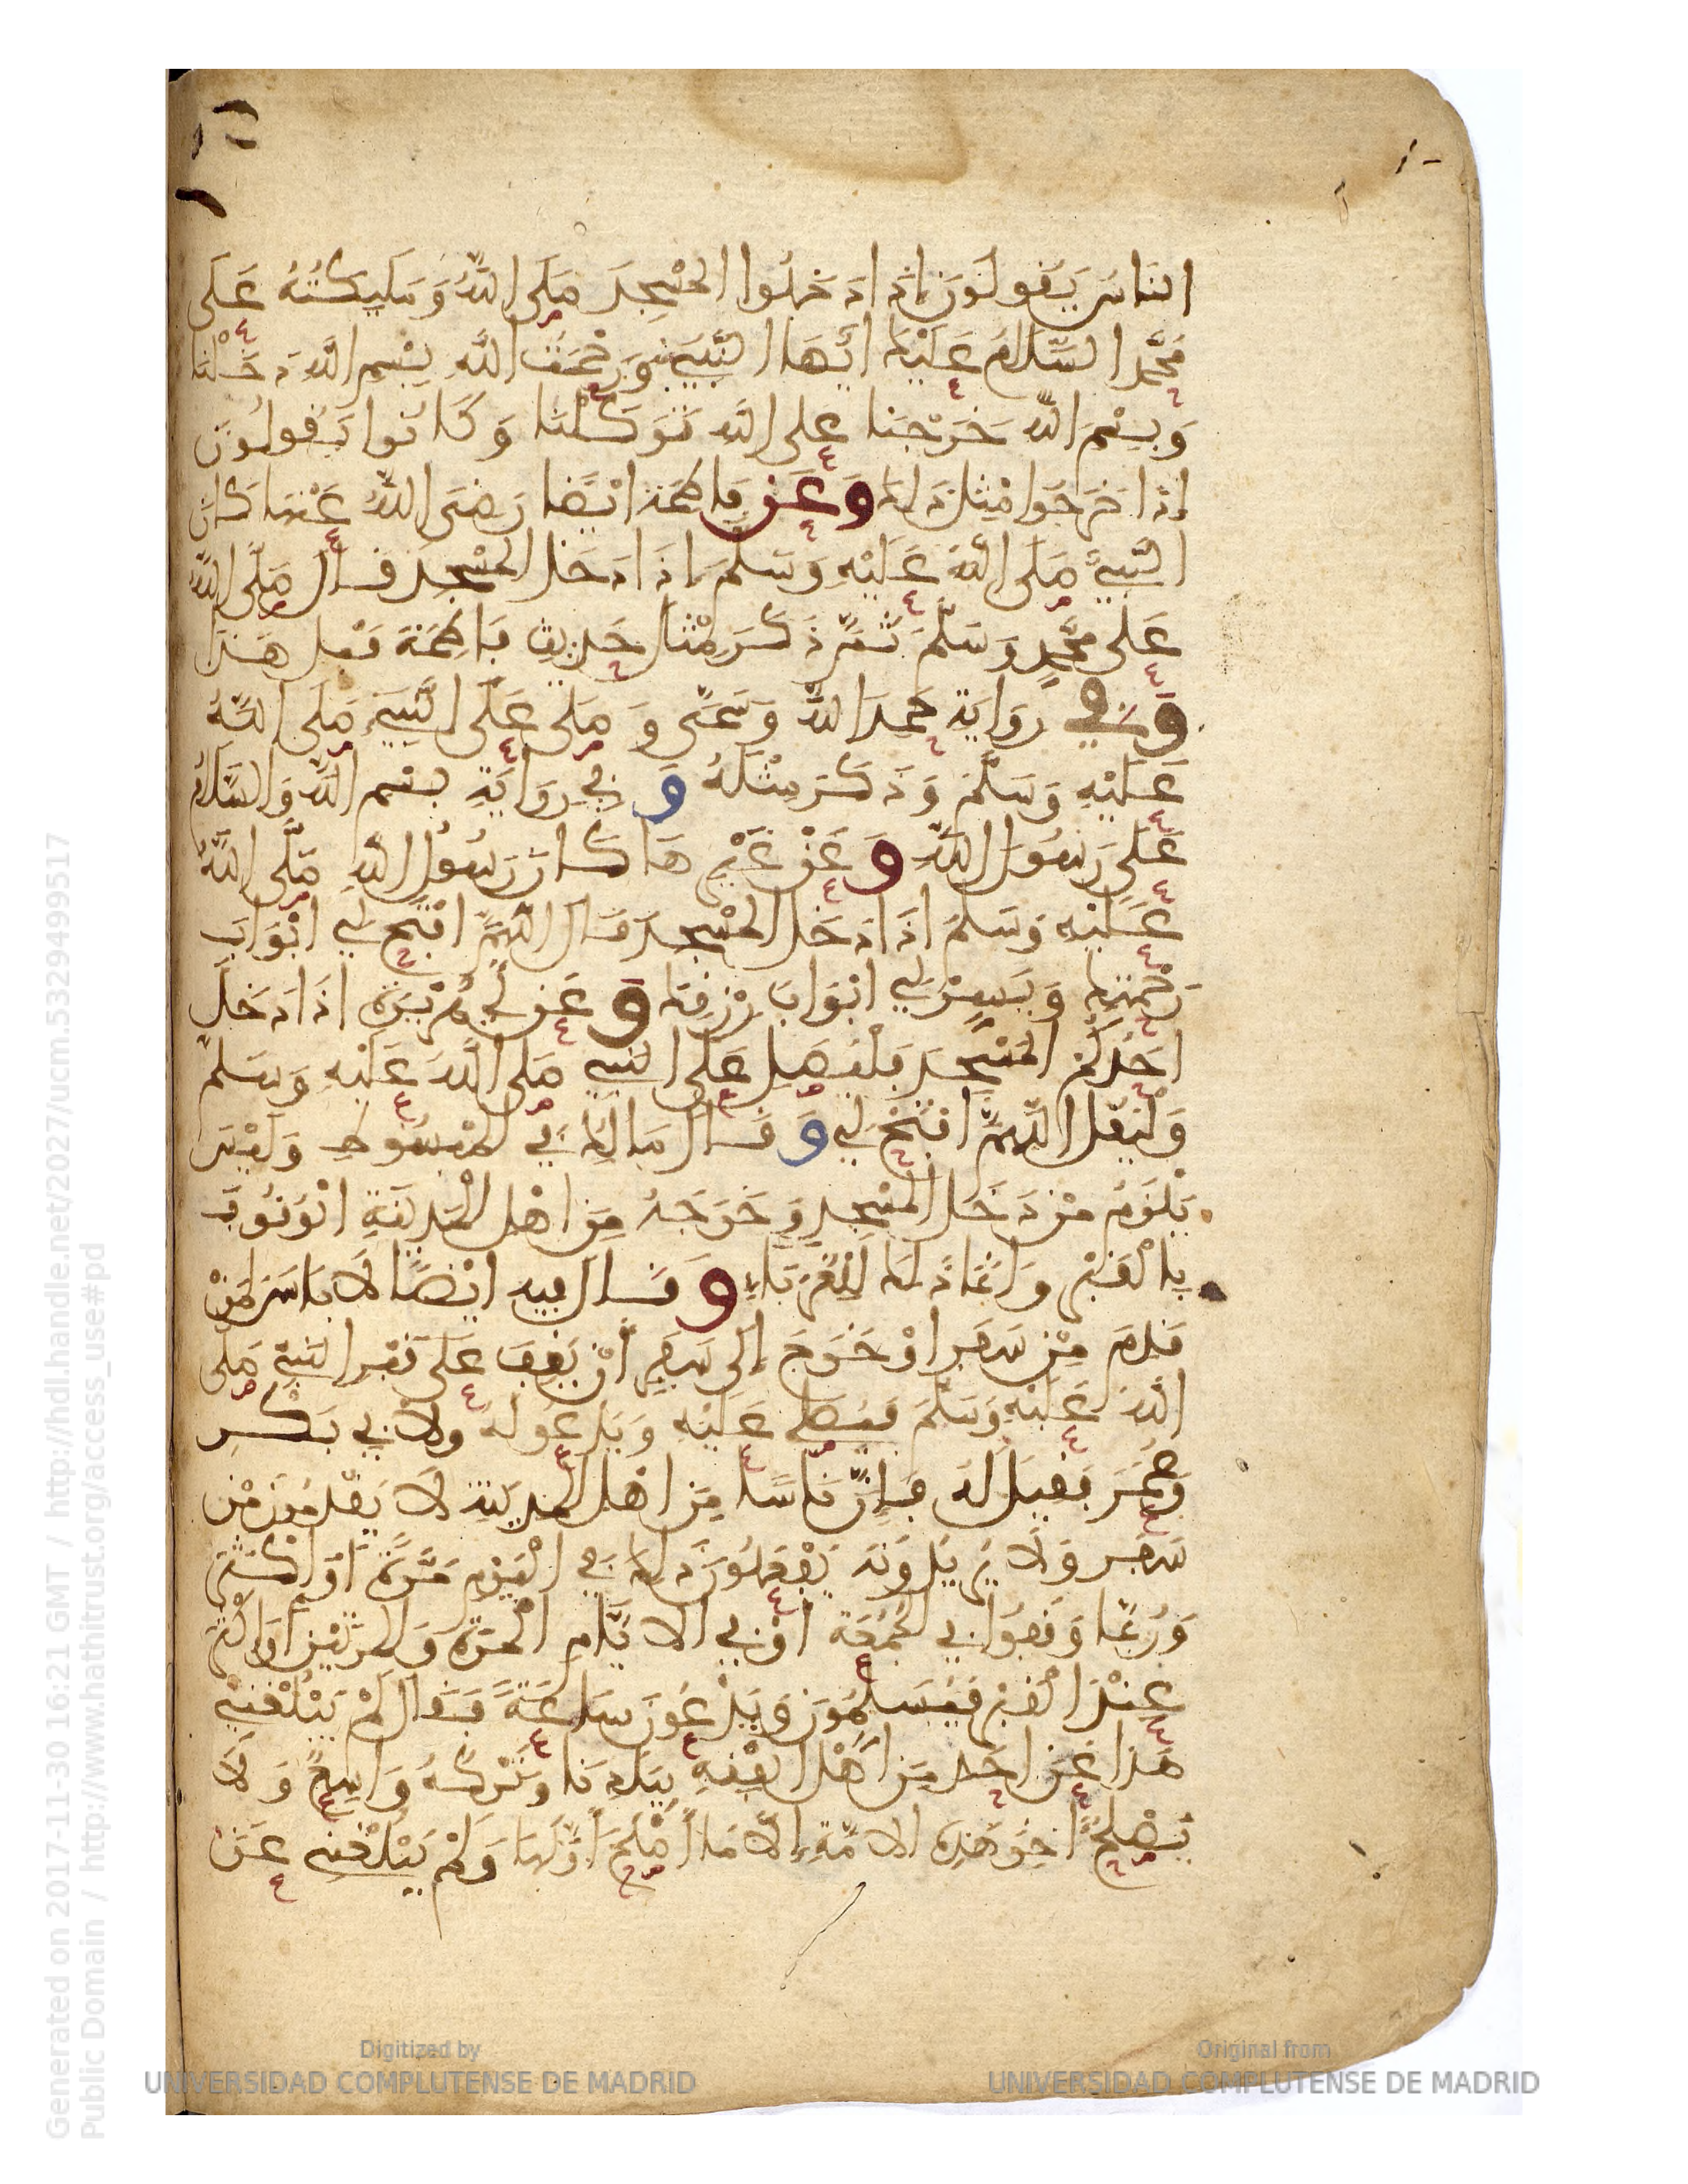 الناس يَقولونَ إذا دَخلوا المسْجِدَ صَلى اللهُ وَمَلَيِكتُهُ عَلَى
مُحَمَّد السَّلامُ عَلَيْكَ أيُّهَا النَّبِيءُ وَرَحْمَتُ اللهِ بِسْمِ اللهِ دَخَلْنَا
وَبِسْمِ اللهِ خَرَجْنَا عَلَى اللهِ تَوَكَّلْنَا وَكَانُوا يَقُولُونَ
إذا خَرَجُوا مِثْلَ ذَلِكَ وَعَن فَاطِمَةَ ايْضًا رَضِيَ اللهُ عَنْهَا كَانَ
النَّبِيءُ صَلى اللهُ عَلَيْهِ وَسَلَّمَ إذَا دَخَلَ المسْجِدَ قَالَ صَلَّى اللهُ
عَلَى مُحَمَّدٍ وَسَلَّمَ ثُمَّ ذَكَرَ مِثْلَ حَدِيثِ فَاطِمَةَ قَبْلَ هَذَا
وَفِي رِوَايَةِ حَمِدَ اللهَ وَسَمَّى وَصَلى عَلَى النَّبِيءِ صَلَى اللهُ
عَلَيْهِ وَسَلَّمَ وَذَكَرَ مِثْلَهُ وَفِي رِوَايَةٍ بِسْمِ اللهِ وَالسَّلَامُ
عَلَى رَسُولِ اللهِ وَعَنْ غَيْرِهَا كَانَ رَسُولُ اللهِ صَلَّى اللهُ
عَلَيْهِ وَسَلَّمَ اذَا دَخَلَ المسْجِدَ قَالَ اللَّهُمَّ افْتَحْ لِي ابْوَابَ
رَحْمَتِكَ وَيَسِّرْ لِي ابْوَابَ رِزْقِكَ وَعَن أَبِي هُرَيْرَةَ اذَا دَخَلَ
احَدُكُمُ المسْجِدَ فَلْيُصَلِّ عَلَى النَّبِي صَلى اللهُ عَلَيْهِ وَسَلمَ
وَلْيَقُلِ اللَّهُمَّ افْتَحْ لِي وَقَالَ مَالِكٌ فِي المبْسُوطِ وَلَيْسَ
يَلْزَمُ مَنْ دَخَلَ المسْجِدَ وَخَرَجَ مِنَ اهْلِ الْمَدِينَةِ الْوُقُوفُ
بِالْقَبْرِ وَإنَّمَا ذَلِكَ لِلْغُرَبَاءِ وَقَالَ فِيهِ ايْضًا لَا بَاسَ لِمَنْ
قَدِمَ مِنْ سَفَرٍ اوْ خَرَجَ إِلَى سَفَرٍ أَنْ يَقِفَ عَلَى قَبْرِ النَّبِيءِ صَلى
اللهُ عَلَيْهِ وَسَلَّمَ فَيُصَلِّي عَلَيْهِ وَيَدْعُو لَهُ وَلِأَبِي بَكْرٍ
وَعُمَرَ فَقِيلَ لَهُ فَإِنَّ نَاسًا مِنَ اهْلِ المدِينَةِ لَا يَقْدَمُونَ مِنْ
سَفَرٍ وَلَا يُرِيدُونَهُ يَفْعَلُونَ ذَلِكَ فِي الْيَوْمِ مَرَّةً أَوْ أَكْثَرَ
وَرُبَّمَا وَقَفُوا فِي الجُمُعَةِ أَوْ فِي الايَّامِ الْمَرَّةَ وَالمرَّتَيْنِ أَوْ أَكْثَرَ
عِنْدَ الْقَبْرِ فَيُسَلِّمُونَ وَيَدْعُونَ سَاعَةً فَقَالَ لَمْ يَبْلُغْنِي
هَذَا عَن احَدٍ مِنَ أَهْلِ الفِقْهِ بِبَلَدِنَا وَتَرْكُهُ وَاسِعٌ وَلَا
يُصْلِحُ اخِرَ هَذِهِ الامَّةِ إِلَّا مَا أَصْلَحَ أَوَّلَهَا وَلَمْ يَبْلُغْنِي عَنَ
Generated on 2017-11-30 16:21 GMT / http://hdl.handle.net/2027/ucm.5329499517
Public Domain / http://www.hathitrust.org/access_use#pd
Digitized by
UNIVERSIDAD COMPLUTENSE DE MADRID
Original from
UNIVERSIDAD COMPLUTENSE DE MADRID